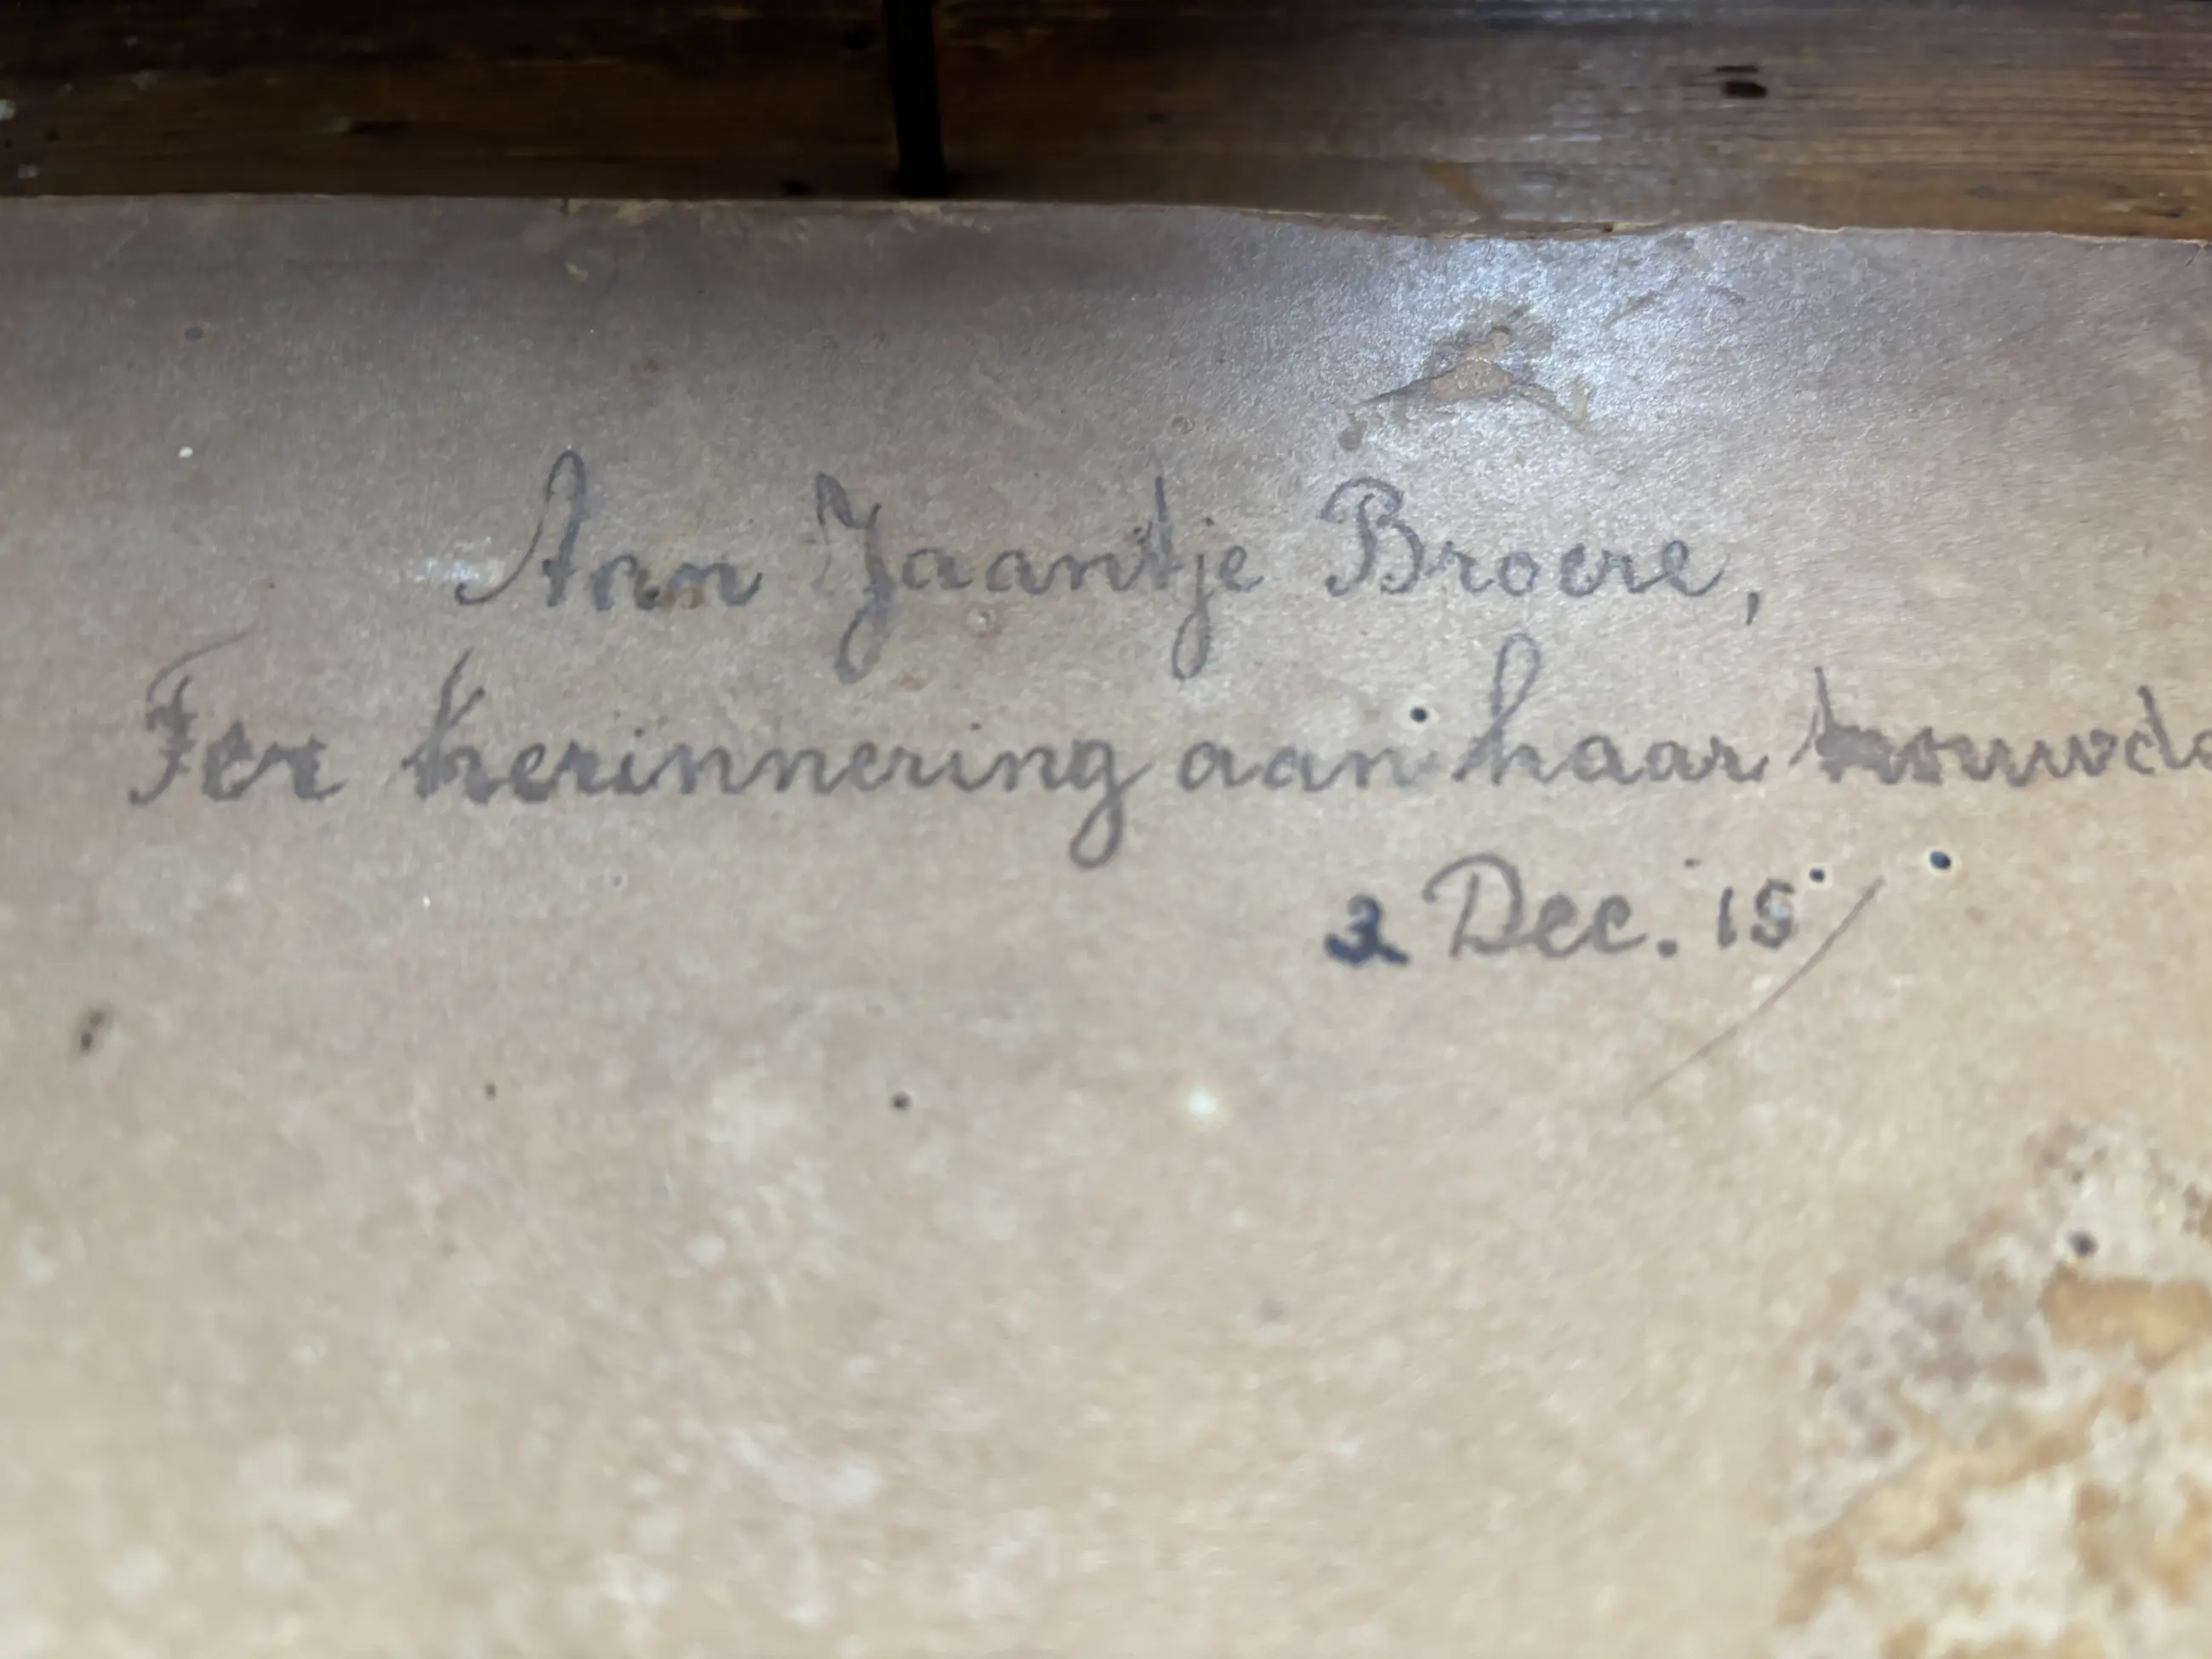 Aan Jaantje Broere,
Ter herinnering aan haar trouwda
2 Dec. 15